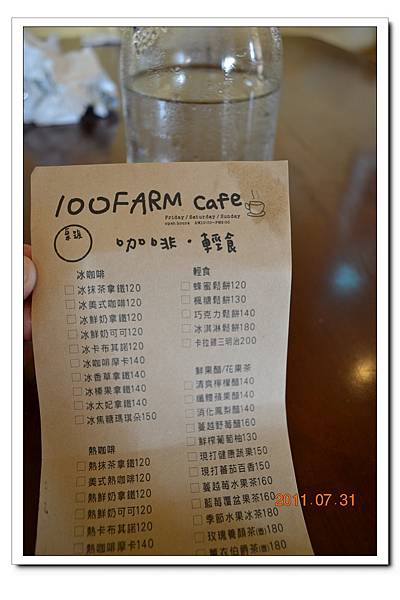 100FARM cafe
Friday/Saturday/Sunday
open hours AM10:00~PM6:00
桌號
咖啡·輕食
冰咖啡
冰抹茶拿鐵120
冰美式咖啡120
冰鮮奶拿鐵120
冰鮮奶可可120
冰卡布其諾120
冰咖啡摩卡140
冰香草拿鐵140
冰榛果拿鐵140
冰太妃拿鐵140
冰焦糖瑪琪朵150
熱咖啡
熱抹茶拿鐵120
美式熱咖啡120
熱鮮奶拿鐵120
熱鮮奶可可120
熱卡布其諾120
熱咖啡摩卡140
輕食
蜂蜜鬆餅120
楓糖鬆餅130
巧克力鬆餅140
冰淇淋鬆餅180
卡拉雞三明治200
鮮果醋/花果茶
清爽檸檬醋140
纖體蘋果醋140
消化鳳梨醋140
蔓越野莓醋160
鮮榨葡萄柚130
現打健康蔬果150
現打蕃茄百香150
蔓越莓水果茶160
藍莓覆盆果茶160
季節水果冰茶180
玫瑰養顏茶(壺)180
薰衣伯爵茶(壺)180
2011.07.31